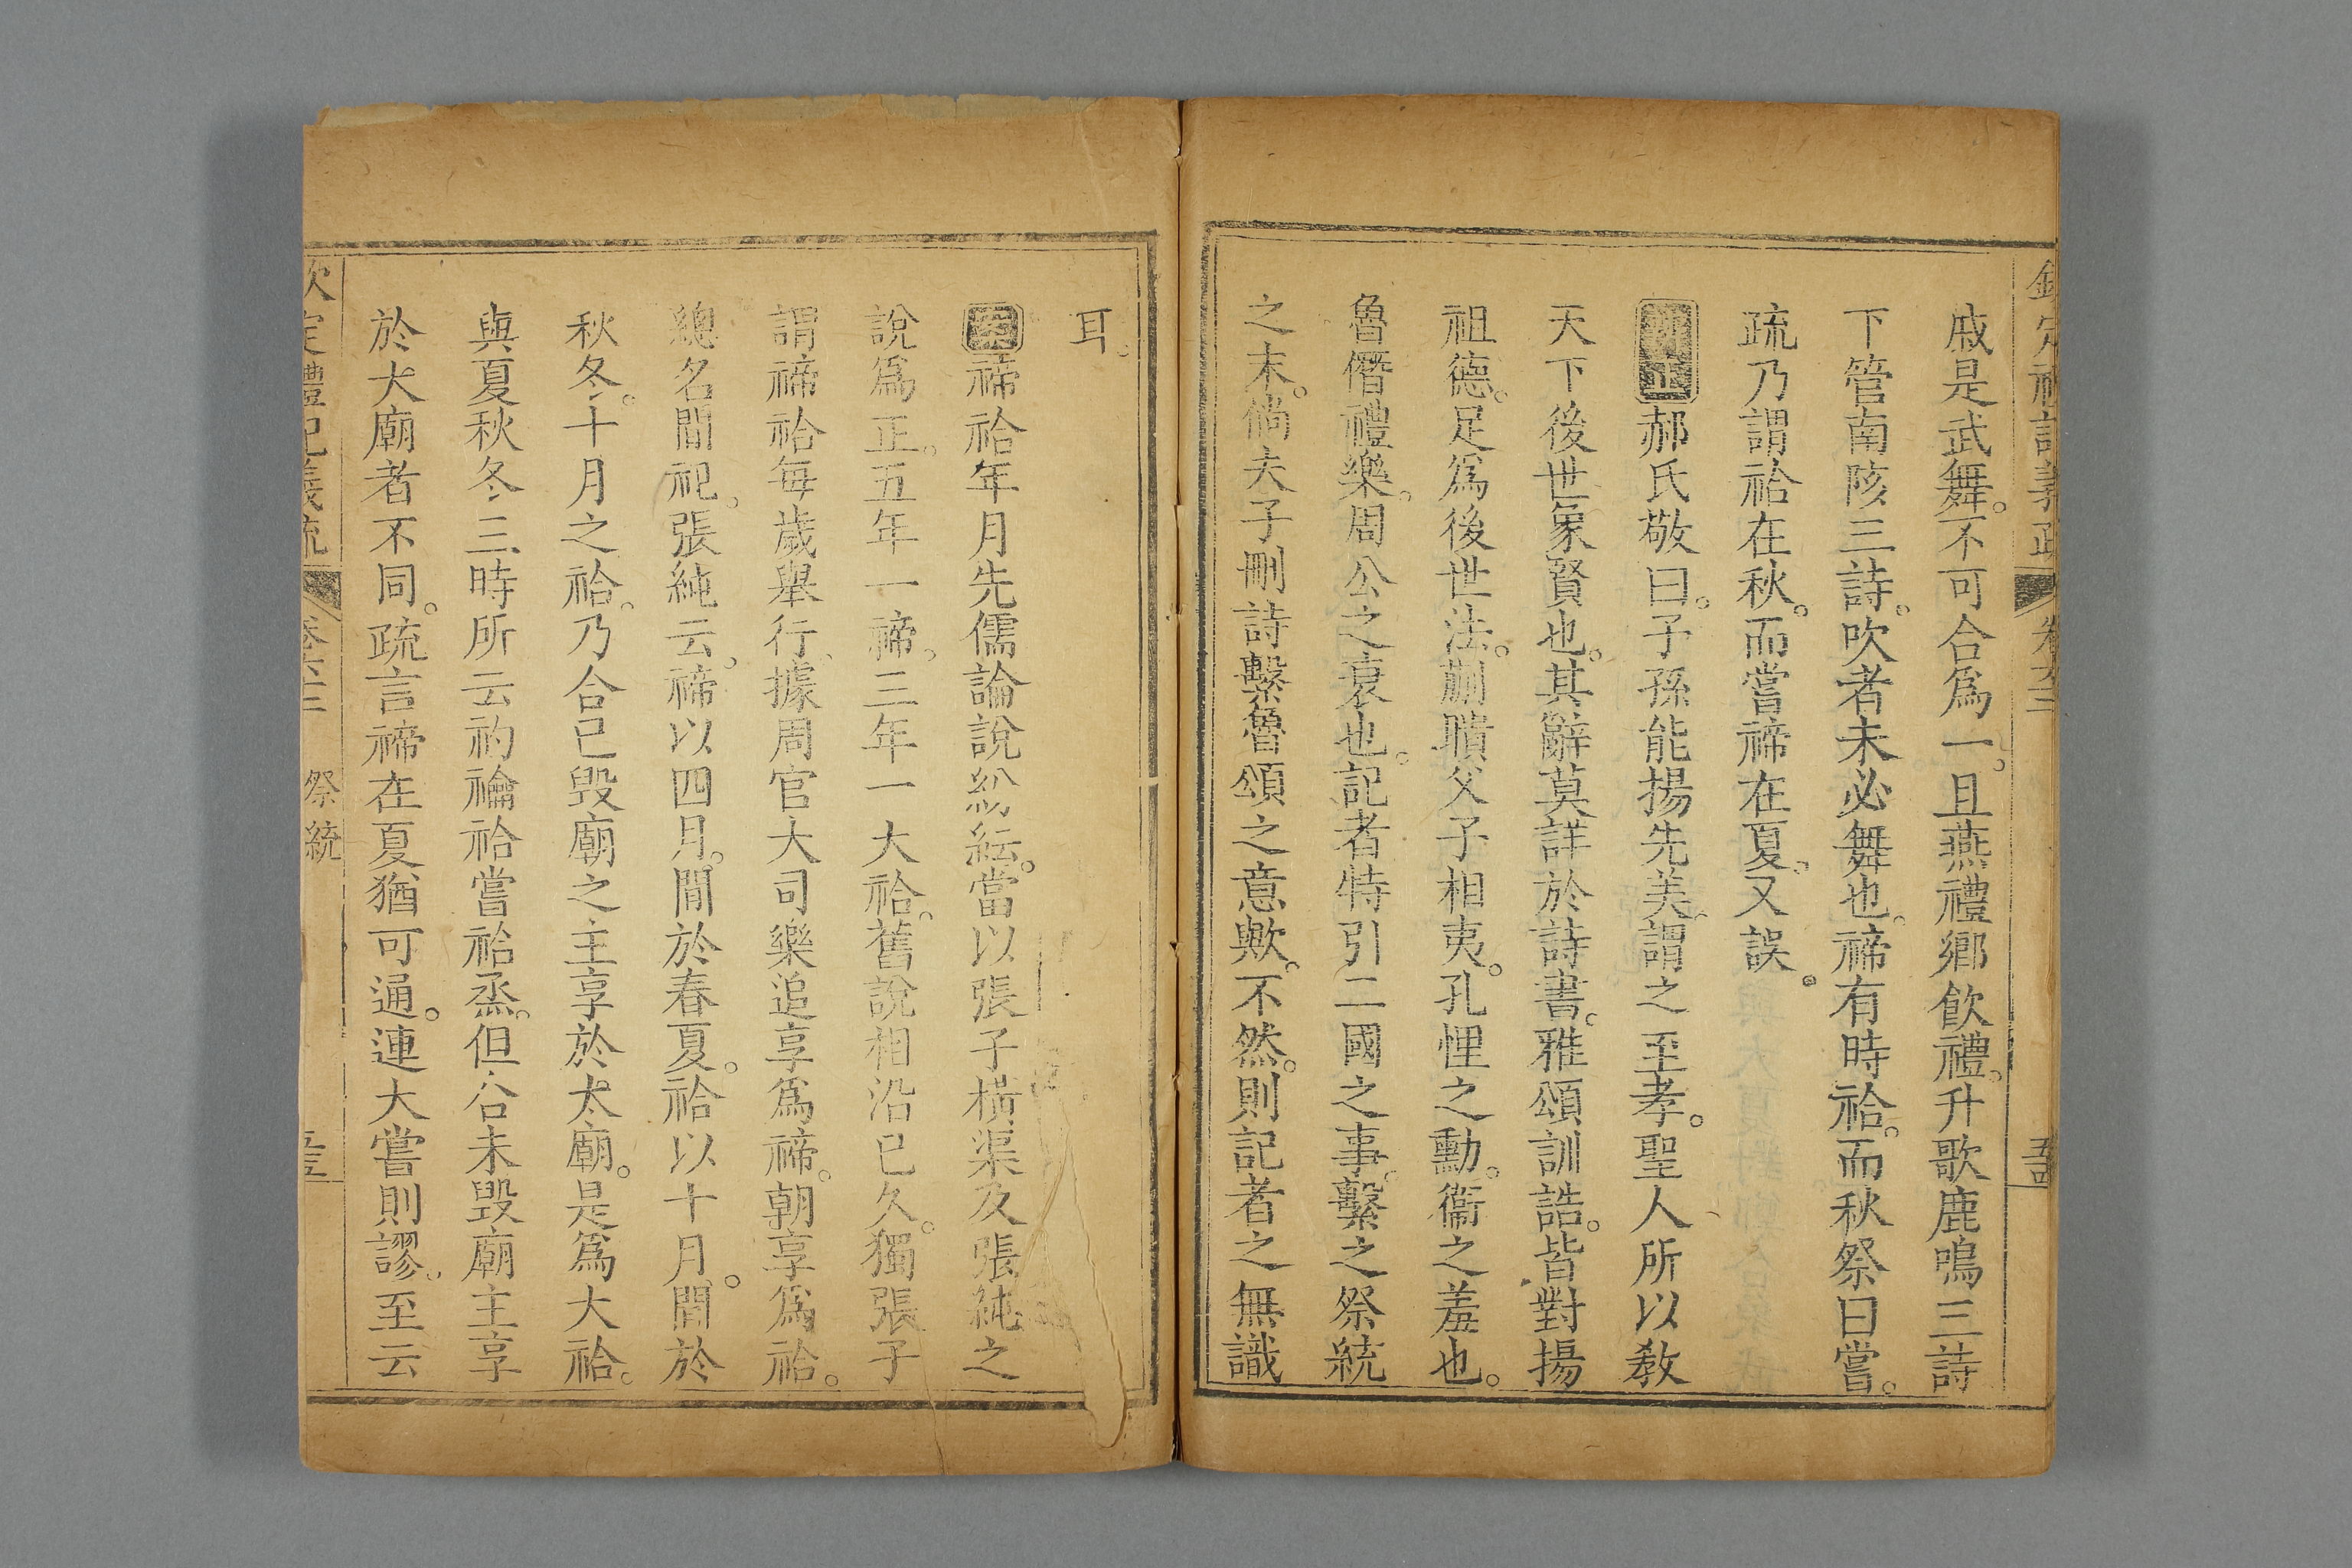 戚是武舞。不可合爲一。且燕禮鄉飲禮。升歌鹿鳴三詩
下管南陔三詩。吹者未必舞也。禘有時祫。而秋祭曰嘗。
疏乃謂祫在秋。而嘗禘在夏。又誤。
正郝氏敬曰。子孫能揚先美。謂之至孝。聖人所以敎
天下後世象賢也。其辭莫詳於詩書。雅頌訓誥。皆對揚
祖德。足爲後世法。蒯聵父子相夷。孔悝之勳。衞之羞也。
魯僭禮樂。周公之衰也。記者特引二國之事。繫之祭統
之末。倘夫子刪詩繫魯頌之意歟。不然。則記者之無識
耳。
禘祫年月先儒論說紛紜。當以張子橫渠及張純之
說爲正。五年一禘。三年一大祫。舊說相沿已久。獨張子
謂禘祫每歲舉行、據周官大司樂追享爲禘。朝享爲祫。
總名間祀。張純云。禘以四月。間於春夏。祫以十月。間於
秋冬。十月之祫。乃合已毀廟之主享於太廟。是爲大祫。
與夏秋冬三時所云礿禴祫嘗祫烝。但合未毀廟主享
於大廟者不同。疏言禘在夏猶可通。連大嘗則謬。至云
定禮記義疏 祭統